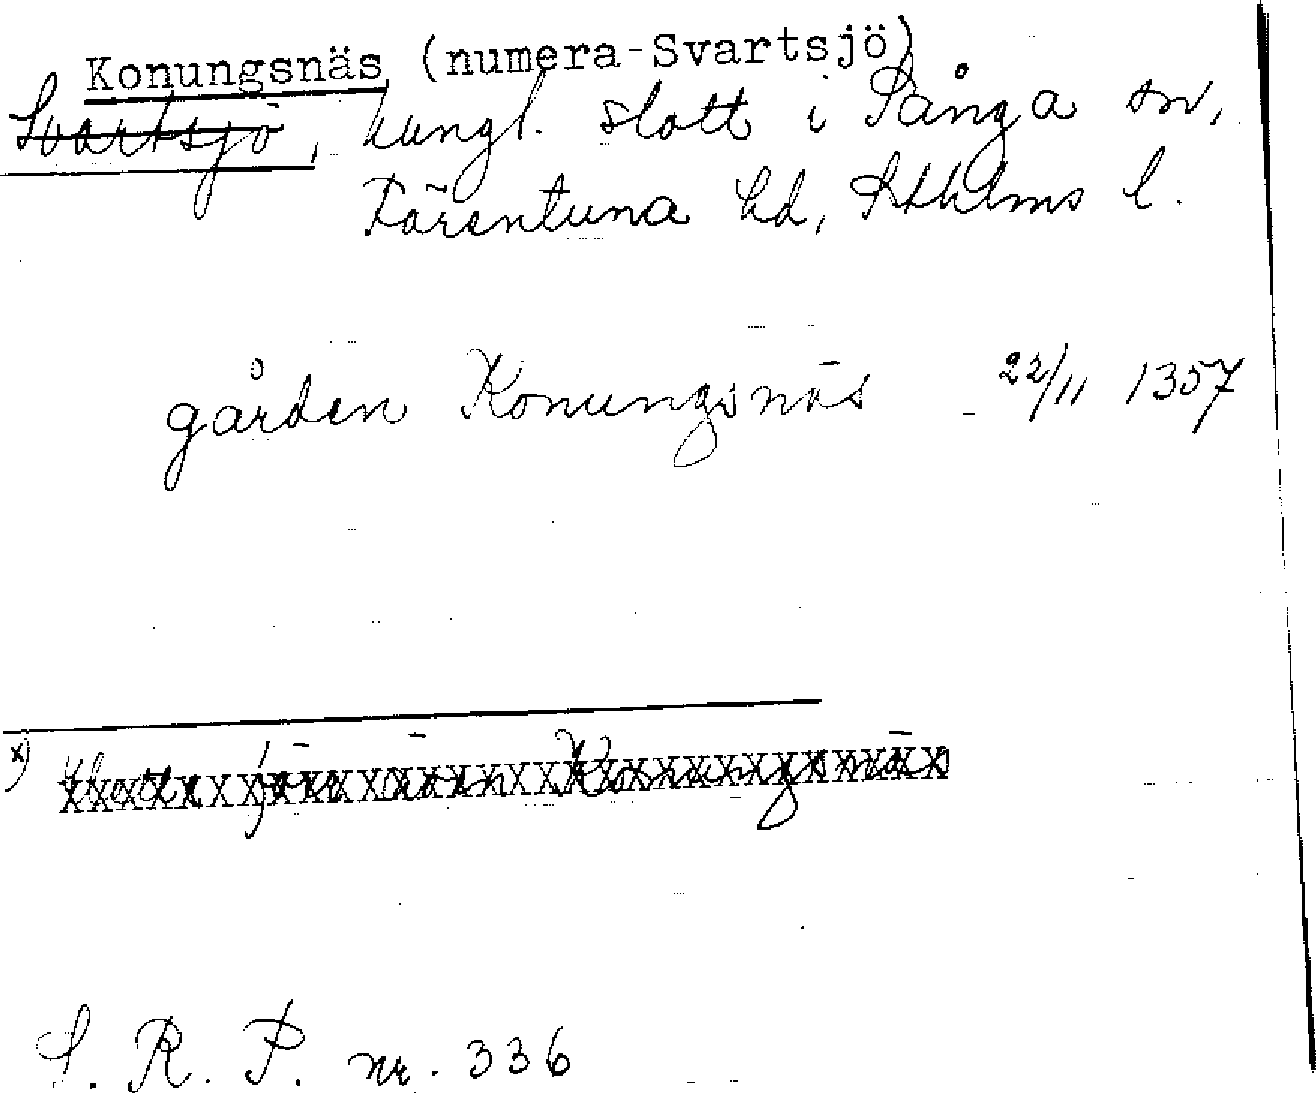 Konungsnäs (numera Svartsjö)
Svartsjö, kungl. slott i Sånga sn,
Färentuna hd, Sthlms l.
gården Konungsnäs 22/11 1357
x)
Konungsnäs
S. R. P. nr. 336